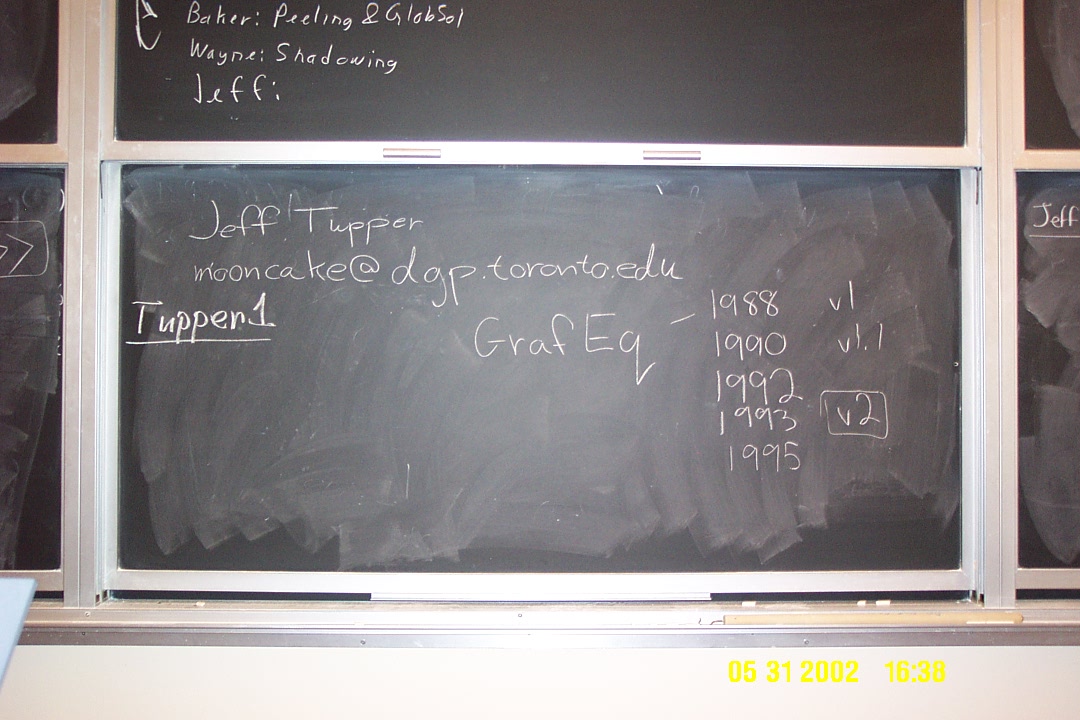 Baker: Peeling & GlobSol
Wayne: Shadowing
Jeff:
Jeff Tupper
mooncake@dgp.toronto.edu
Tupper1
GrafEq – 1988 v1
1990 v1.1
1992
1993 v2
1995
>>
Jeff
05 31 2002 16:38